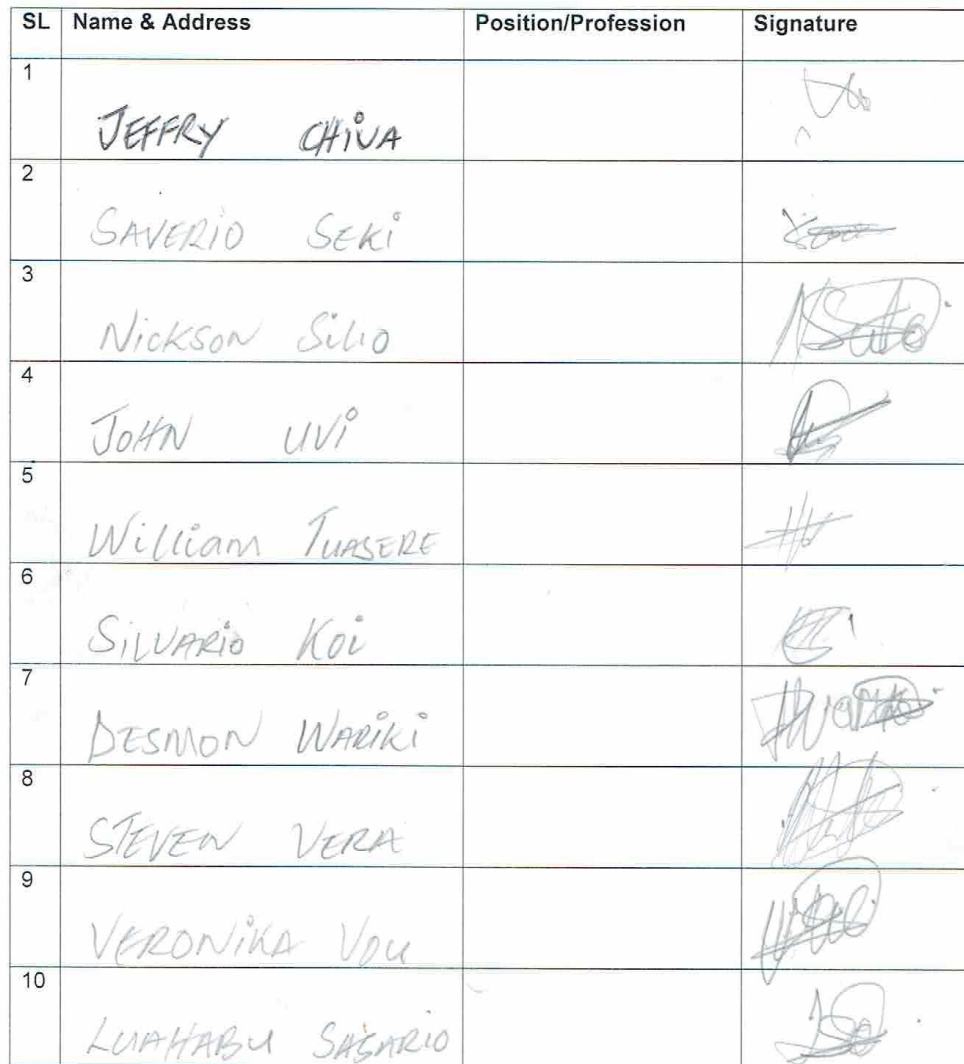 SL Name & Address Position/Profession Signature
1
JEFFRY CHIVA
2
SAVERIO SEKI
3
Nickson Silio
4
JOHN UVI
5
William TUASERE
6
SILVARIO KOI
7
DESMON WARIKI
8
STEVEN VERA
9
VERONIKA VOU
10
LUAHABU SASARIO